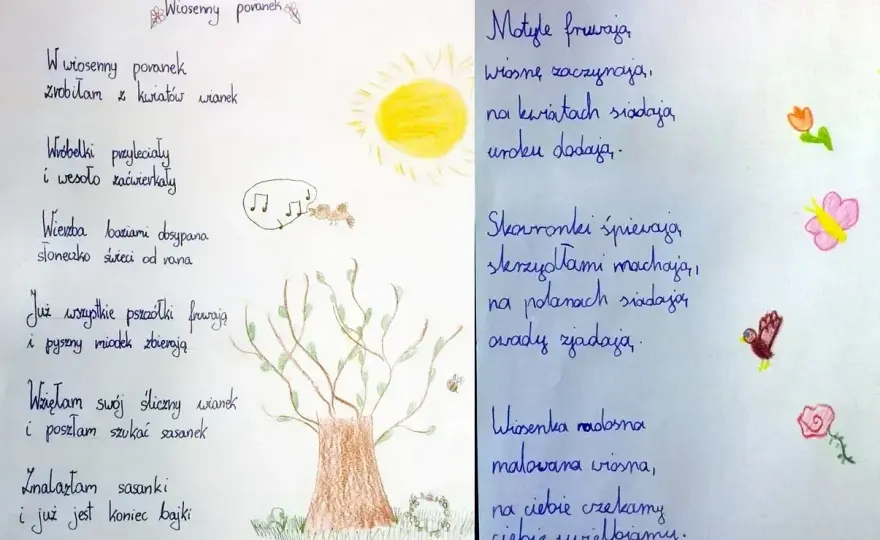 Wiosenny poranek
W wiosenny poranek
zrobiłam z kwiatów wianek
Wróbelki przyleciały
i wesoło zaćwierkały
Wierzba baziami obsypana
słoneczko świeci od rana
Już wszystkie pszczółki fruwają
i pyszny miodek zbierają
Wzięłam swój śliczny wianek
i poszłam szukać sasanek
Znalazłam sasanki
i już jest koniec bajki
Motyle fruwają,
wiosnę zaczynają,
na kwiatach siadają,
uroku dodają.
Skowronki śpiewają,
skrzydłami machają,
na polanach siadają,
owady zjadają.
Wiosenka radosna
malowana wiosna,
na ciebie czekamy
ciebie uwielbiamy.